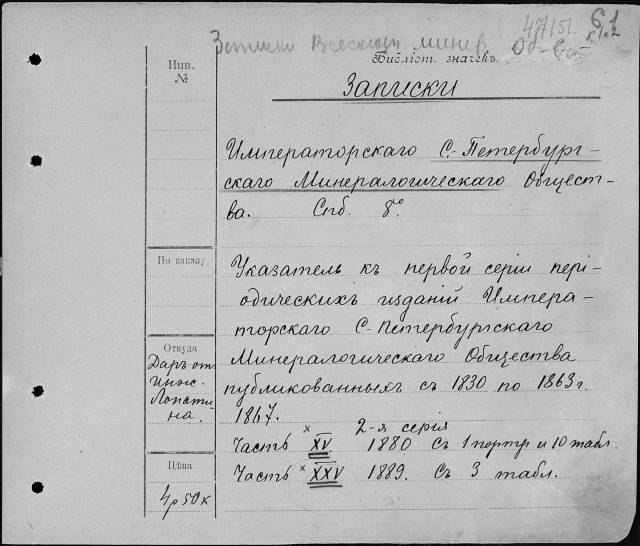 47151.
6.1
к 1.2
Записки Всесоюзн минер. Об-
Инв.
№
Библіот. значекъ.
Записки
Императорскаго С.-Петербург-
скаго Минералогическаго Общест-
ва. Спб. 8º.
По заказу
Указатель къ первой серіи періо-
одическихъ изданій Импера-
торскаго С-Петербургскаго
Минералогическаго Общества
публикованныхъ съ 1830 по 1863 г.
1867.
Откуда
Даръ отъ
Инж.
Лопати
на.
2-я серія
Часть XV 1880 Съ 1 портр и 10 табл.
Часть XXV 1889. Съ 3 табл.
Цѣна
4р 50к